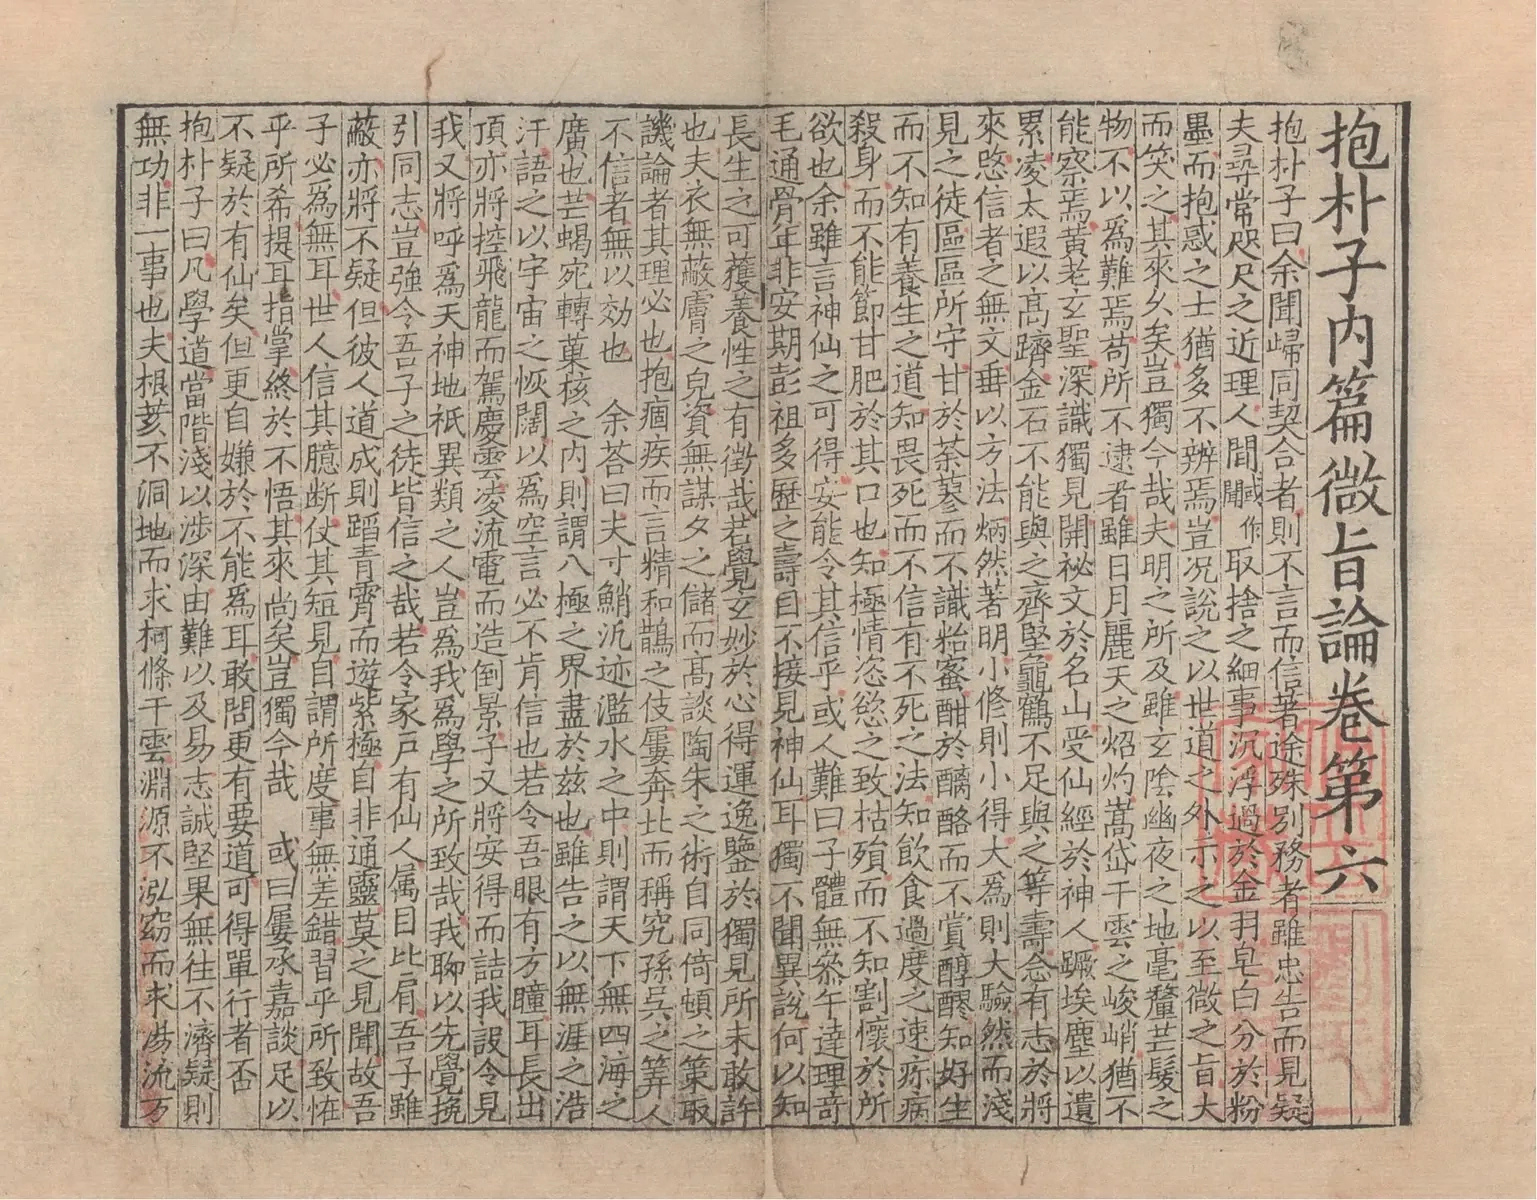 抱朴子內篇微旨論卷第六
抱朴子曰余聞歸同契合者則不言而信著途殊別務者雖忠告而見疑
夫尋常咫尺之近理人間聞作取捨之細事沉浮過於金羽皂白分於粉
墨而抱惑之士猶多不辨焉豈況說之以世道之外示之以至微之旨大
而笑之其來久矣豈獨今哉夫明之所及雖玄陰幽夜之地毫釐芒髮之
物不以為難焉苟所不逮者雖日月麗天之炤灼嵩岱干雲之峻峭猶不
能察焉黃老玄聖深識獨見開祕文於名山受仙經於神人蹶埃塵以遺
累凌太遐以高躋金石不能與之齊堅龜鶴不足與之等壽念有志於將
來愍信者之無文垂以方法炳然著明小修則小得大為則大驗然而淺
見之徒區區所守甘於荼蓼而不識飴蜜酣於醨酪而不賞醇醪知好生
而不知有養生之道知畏死而不信有不死之法知飲食過度之速疢病
殺身而不能節甘肥於其口也知極情恣慾之致枯殞而不知割懷於所
欲也余雖言神仙之可得安能令其信乎或人難曰子體無叅午達理奇
毛通骨年非安期彭祖多歷之壽目不接見神仙耳獨不聞異說何以知
長生之可獲養性之有徵哉若覺玄妙於心得運逸鑒於獨見所未敢許
也夫衣無蔽膚之皃資無謀夕之儲而高談陶朱之術自同倚頓之策取
譏論者其理必也抱痼疾而言精和鵲之伎屢奔北而稱究孫吳之筭人
不信者無以効也　余荅曰夫寸鮹汎迹濫水之中則謂天下無四海之
廣也芒蝎死轉菓核之內則謂八極之界盡於茲也雖告之以無涯之浩
汗語之以宇宙之恢闊以為空言必不肯信也若令吾眼有方瞳耳長出
頂亦將控飛龍而駕慶雲凌流電而造倒景子又將安得而詰我設令見
我又將呼為天神地祇異類之人豈為我為學之所致哉我聊以先覺挽
引同志豈強令吾子之徒皆信之哉若令家戶有仙人属目比肩吾子雖
蔽亦將不疑但彼人道成則蹈青霄而遊紫極自非通靈莫之見聞故吾
子必為無耳世人信其臆断仗其短見自謂所度事無差錯習乎所致恠
乎所希提耳指掌終於不悟其來尚矣豈獨今哉　或曰屢承嘉談足以
不疑於有仙矣但更自嫌於不能為耳敢問更有要道可得單行者否
抱朴子曰凡學道當階淺以涉深由難以及易志誠堅果無往不濟疑則
無功非一事也夫根荄不洞地而求柯條干雲淵源不泓窈而求湯流万